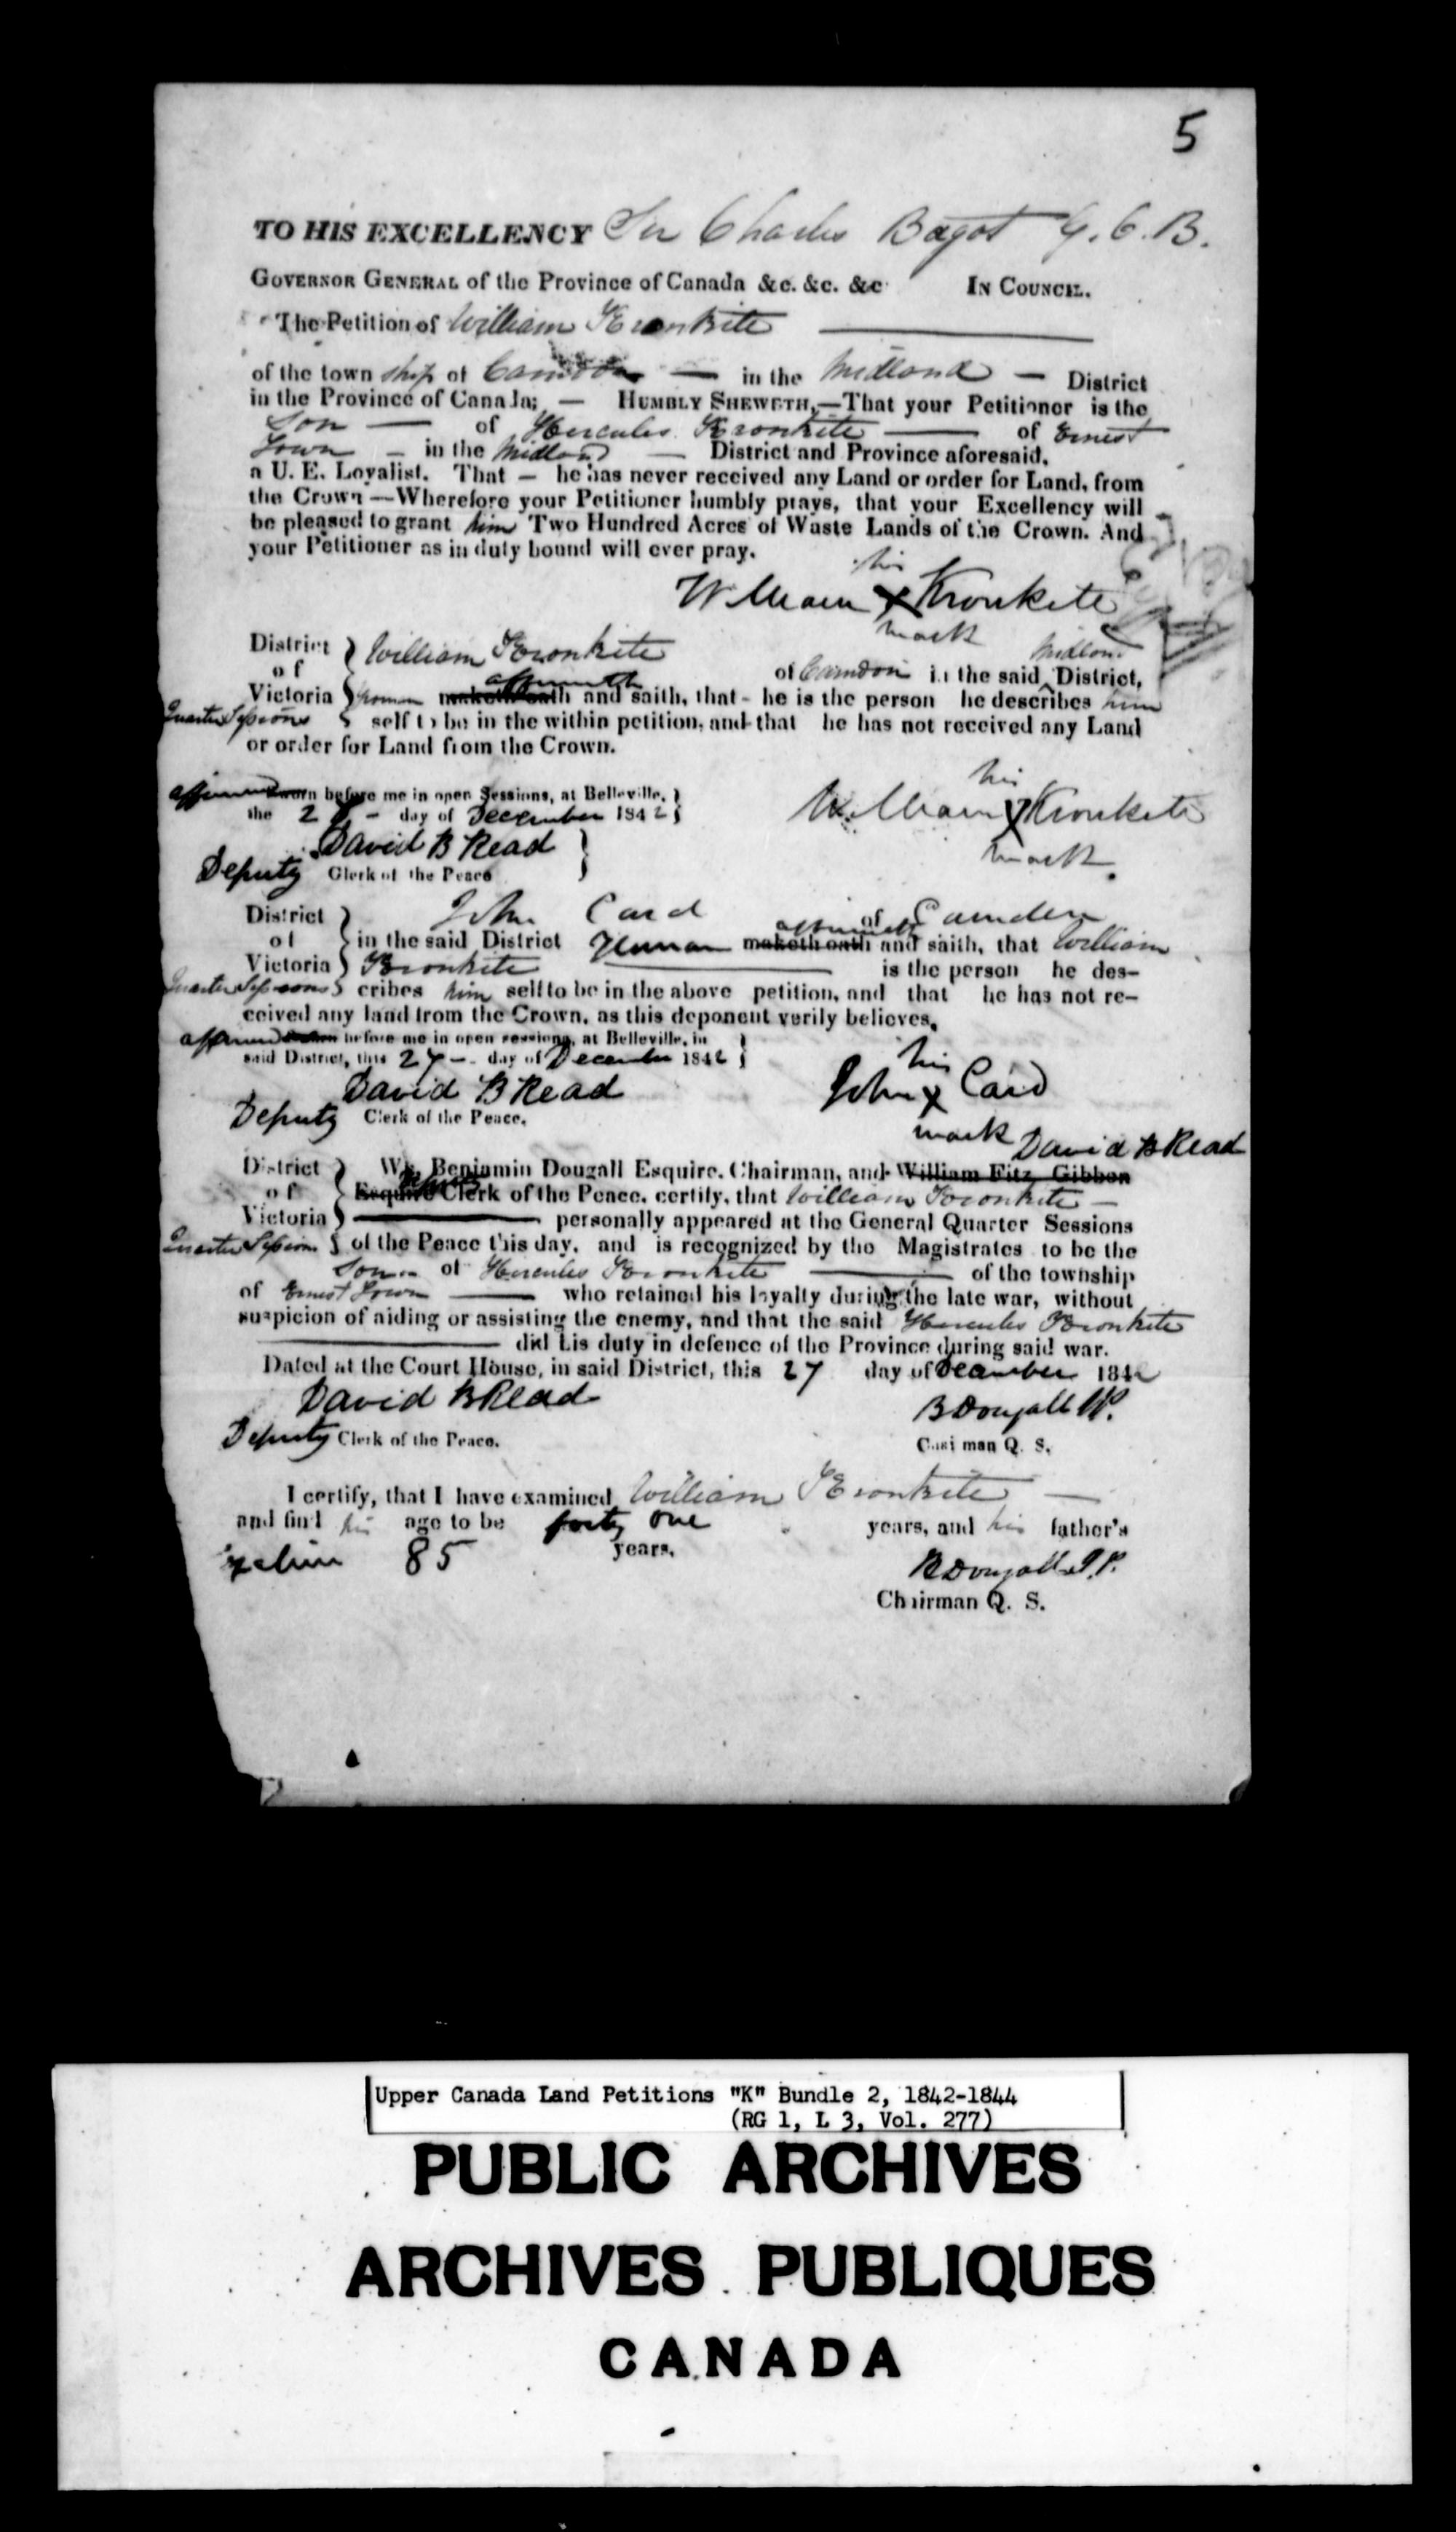 5
TO HIS EXCELLENCY Sir Charles Bagot G. C. B.
GOVERNOR GENERAL of the Province of Canada &c. &c. &c IN COUNCIL.
The Petition of William Kronkite
of the town ship of Camden — in the Midland — District
in the Province of Canada; — HUMBLY SHEWETH,—That your Petitioner is the
Son — of Hercules Kronkite — of Ernest
Town — in the Midland — District and Province aforesaid,
a U. E. Loyalist. That — he has never received any Land or order for Land, from
the Crown —Wherefore your Petitioner humbly prays, that your Excellency will
be pleased to grant him Two Hundred Acres of Waste Lands of the Crown. And
your Petitioner as in duty bound will ever pray.
his
William X Kronkite
mark
District of Victoria Quarter Sessions } William Kronkite
Midland
of Camdon in the said District,
affirmeth
maketh oath and saith, that - he is the person he describes him
self to be in the within petition, and that he has not received any Land
or order for Land from the Crown.
affirmed sworn before me in open Sessions, at Belleville,
the 27 - day of December 1842
his
William X Kronkite
mark
David B Read
Deputy Clerk of the Peace
District of Victoria Quarter Sessions } John Card of Camden
affirmeth
in the said District Yeoman maketh oath and saith, that William
Kronkite is the person he des-
cribes him self to be in the above petition, and that he has not re-
ceived any land from the Crown, as this deponent verily believes.
affirmed sworn before me in open sessions, at Belleville, in
said District, this 27 - day of December 1842
his
John X Card
mark
David B Read
Deputy Clerk of the Peace.
David B Read
District of Victoria Quarter Sessions } We, Benjamin Dougall Esquire, Chairman, and William Fitz Gibbon
Deputy
Esquire Clerk of the Peace, certify, that William Kronkite —
personally appeared at the General Quarter Sessions
of the Peace this day, and is recognized by the Magistrates to be the
Son of Hercules Kronkite — of the township
of Ernest Town — who retained his loyalty during the late war, without
suspicion of aiding or assisting the enemy, and that the said Hercules Kronkite
— did his duty in defence of the Province during said war.
Dated at the Court House, in said District, this 27 day of December 1842
David B Read
Deputy Clerk of the Peace.
B Dougall JP.
Chairman Q. S.
I certify, that I have examined William Kronkite —
and find his age to be forty one years, and his father's
85 years.
B Dougall J.P.
Chairman Q. S.
Upper Canada Land Petitions "K" Bundle 2, 1842-1844
(RG 1, L 3, Vol. 277)
PUBLIC ARCHIVES
ARCHIVES PUBLIQUES
CANADA